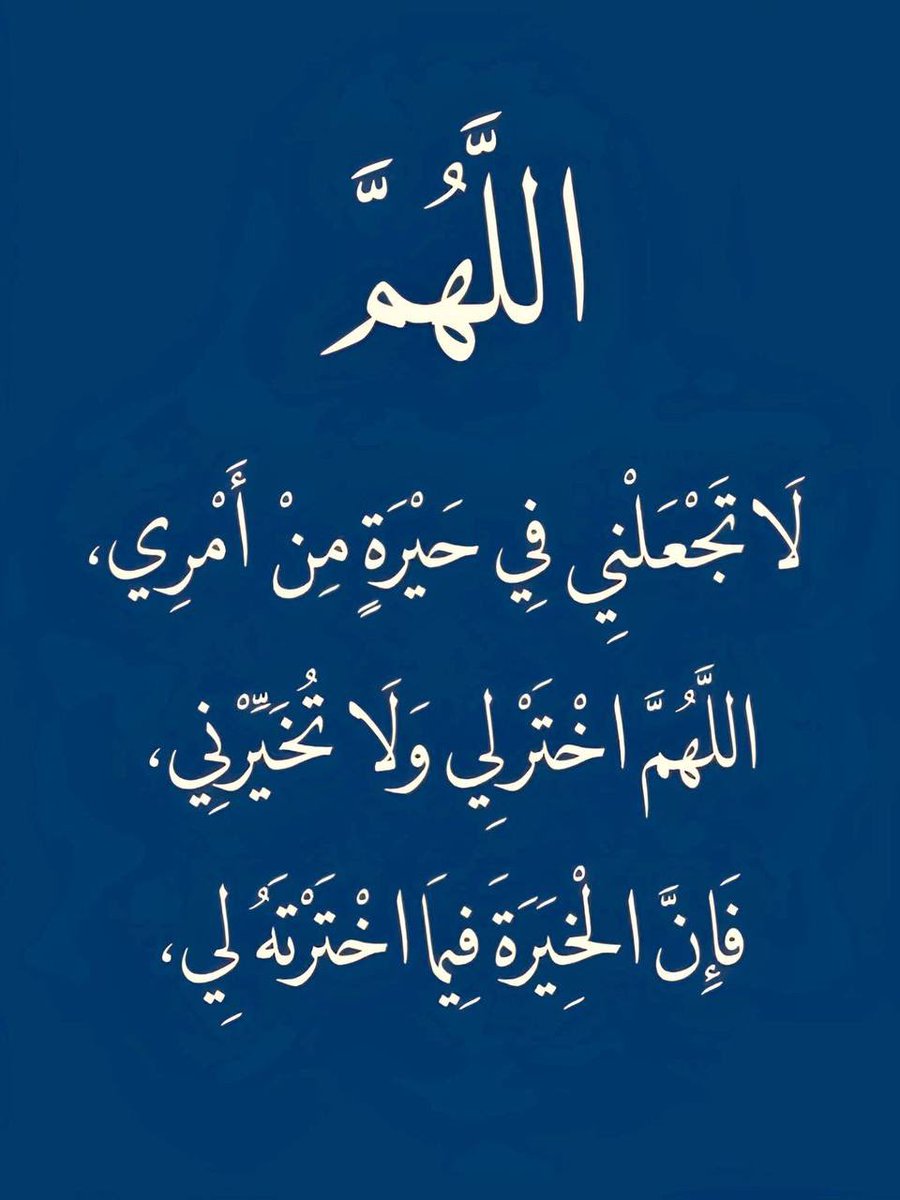 اللَّهُمَّ
لَا تَجْعَلْنِي فِي حَيْرَةٍ مِنْ أَمْرِي،
اللَّهُمَّ اخْتَرْ لِي وَلَا تُخَيِّرْنِي،
فَإِنَّ الْخِيَرَةَ فِيمَا اخْتَرْتَهُ لِي،